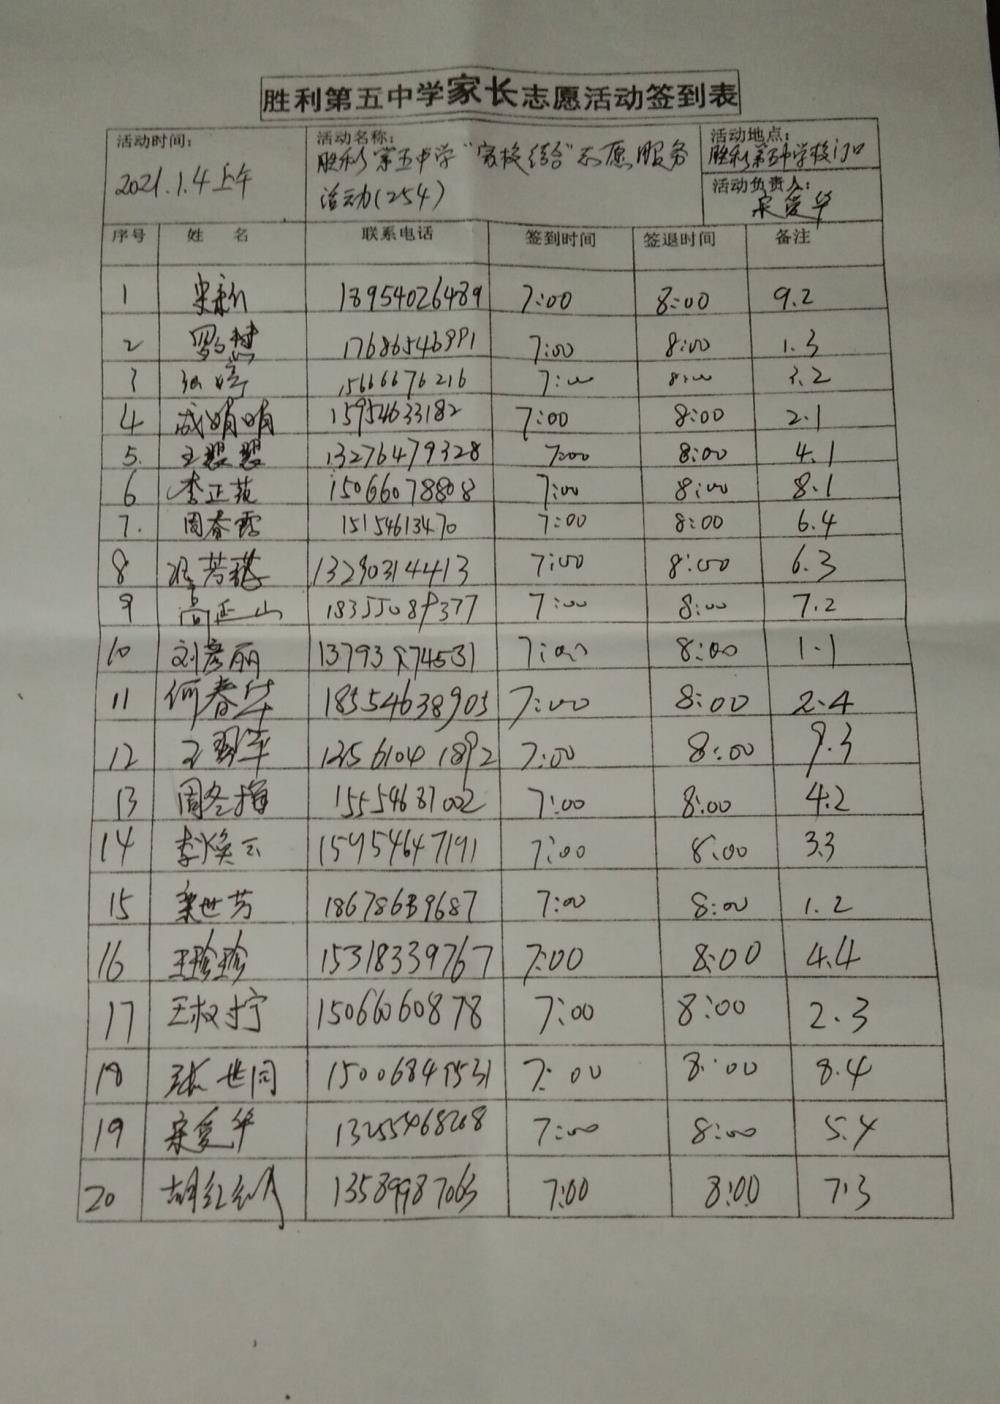 胜利第五中学家长志愿活动签到表
活动时间： 活动名称： 活动地点：
2021.1.4上午 胜利第五中学“家校结合”志愿服务 胜利第五中学校门口
活动(254) 活动负责人：
宋爱华
序号 姓 名 联系电话 签到时间 签退时间 备注
1 18954026489 7:00 8:00 9.2
2 17686546991 7:00 8:00 1.3
3 15666676216 7:00 8:00 3.2
4 成娟娟 15954633182 7:00 8:00 2.1
5. 王翠翠 13276479328 7:00 8:00 4.1
6 李正苑 15066078808 7:00 8:00 8.1
7. 周春霞 15154613470 7:00 8:00 6.4
8 13290314413 7:00 8:00 6.3
9 高正山 18355089377 7:00 8:00 7.2
10 刘彦丽 13793874531 7:00 8:00 1.1
11 何春华 18554638905 7:00 8:00 2.4
12 7:00 8:00 9.3
13 周冬梅 15554631002 7:00 8:00 4.2
14 李焕云 15954647191 7:00 8:00 3.3
15 梁世芳 18678639687 7:00 8:00 1.2
16 王珍珍 15318339767 7:00 8:00 4.4
17 15066060878 7:00 8:00 2.3
18 张世同 15006849531 7:00 8:00 8.4
19 宋爱华 13255468208 7:00 8:00 5.4
20 13589987063 7:00 8:00 7.3